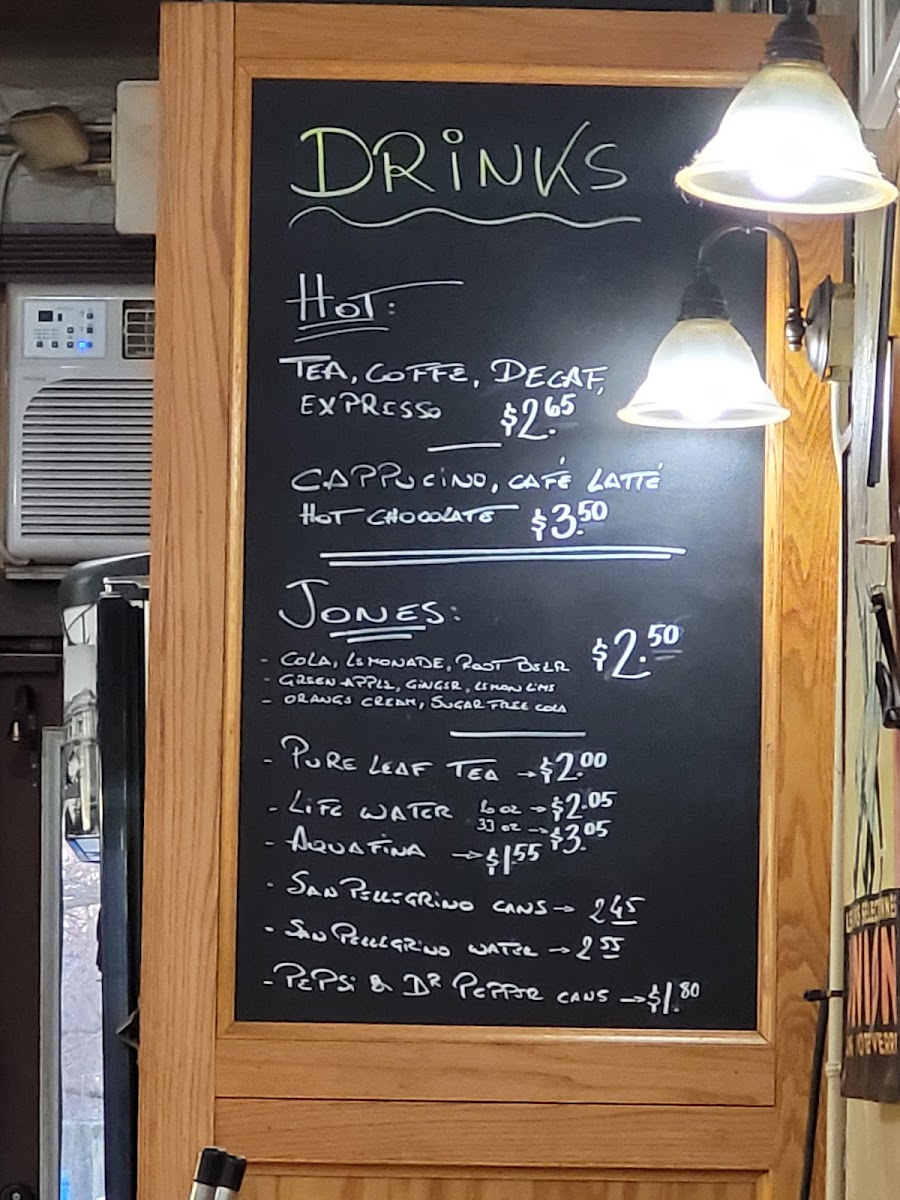 DRiNKS
HOT:
TEA, COFFE, DECAF,
EXPRESSO $2.65
CAPPUCINO, CAFÉ LATTÉ
HOT CHOCOLATE $3.50
JONES:
$2.50
- COLA, LEMONADE, ROOT BEER
- GREEN APPLE, GINGER, LEMON LIME
- ORANGE CREAM, SUGAR FREE COLA
- PURE LEAF TEA →$2.00
- LIFE WATER 16 oz →$2.05
33 oz →$3.05
- AQUAFINA →$1.55
- SAN PELLEGRINO CANS → 2 45
- SAN PELLEGRINO WATER → 2 55
- PEPSi & DR PEPPER CANS →$1.80